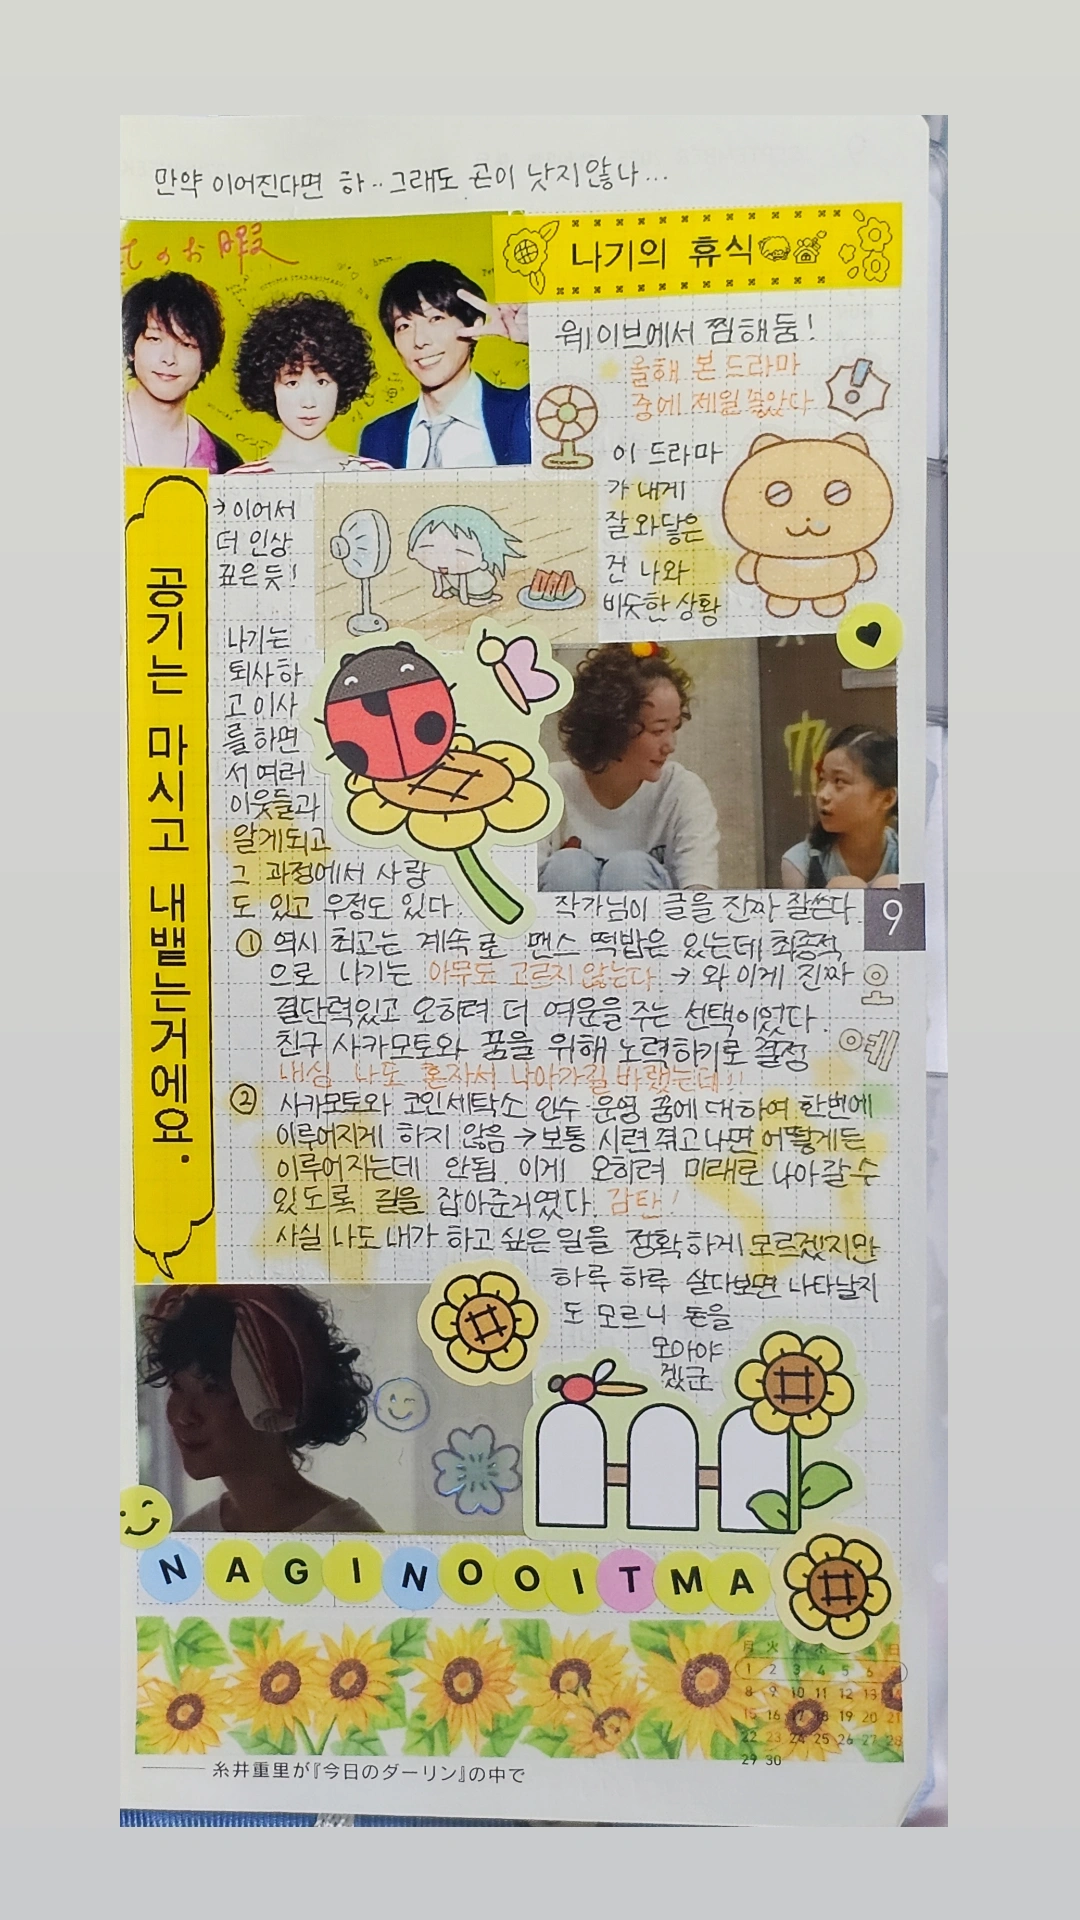 만약 이어진다면 하.. 그래도 곤이 낫지않나...
のお暇
나기의 휴식
웨이브에서 찜해둠!
올해 본 드라마
중에 제일 좋았다
이 드라마
가 내게
잘 와닿은
건 나와
비슷한 상황
→ 이어서
더 인상
깊은 듯!
나기는
퇴사하
고 이사
를 하면
서 여러
이웃들과
알게되고
그 과정에서 사랑
도 있고 우정도 있다.
공기는 마시고 내뱉는거에요.
작가님이 글을 진짜 잘쓴다
9
① 역시 최고는 계속 로맨스 떡밥은 있는데 최종적
으로 나기는 아무도 고르지 않는다. → 와 이게 진짜
결단력있고 오히려 더 여운을 주는 선택이었다.
친구 사카모토와 꿈을 위해 노력하기로 결정
내심 나도 혼자서 나아가길 바랬는데!!
오
예
② 사카모토와 코인세탁소 인수·운영 꿈에 대하여 한번에
이루어지게 하지 않음 → 보통 시련 줘고나면 어떻게든
이루어지는데 안됨. 이게 오히려 미래로 나아갈 수
있도록 길을 잡아준거였다. 감탄!
사실 나도 내가 하고 싶은 일을 정확하게 모르겠지만
하루 하루 살다보면 나타날지
도 모르니 돈을
모아야
겠군
NAGINOOITMA
月 火 水 木 日
1 2 3 4 5 6
8 9 10 11 12 13 14
15 16 17 18 19 20 21
22 23 24 25 26 27 28
29 30
糸井重里が『今日のダーリン』の中で